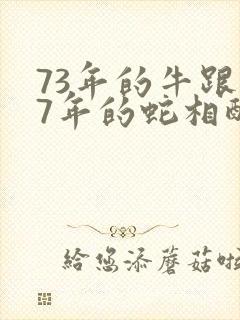 73年的牛跟
7年的蛇相
给您添蘑菇啦